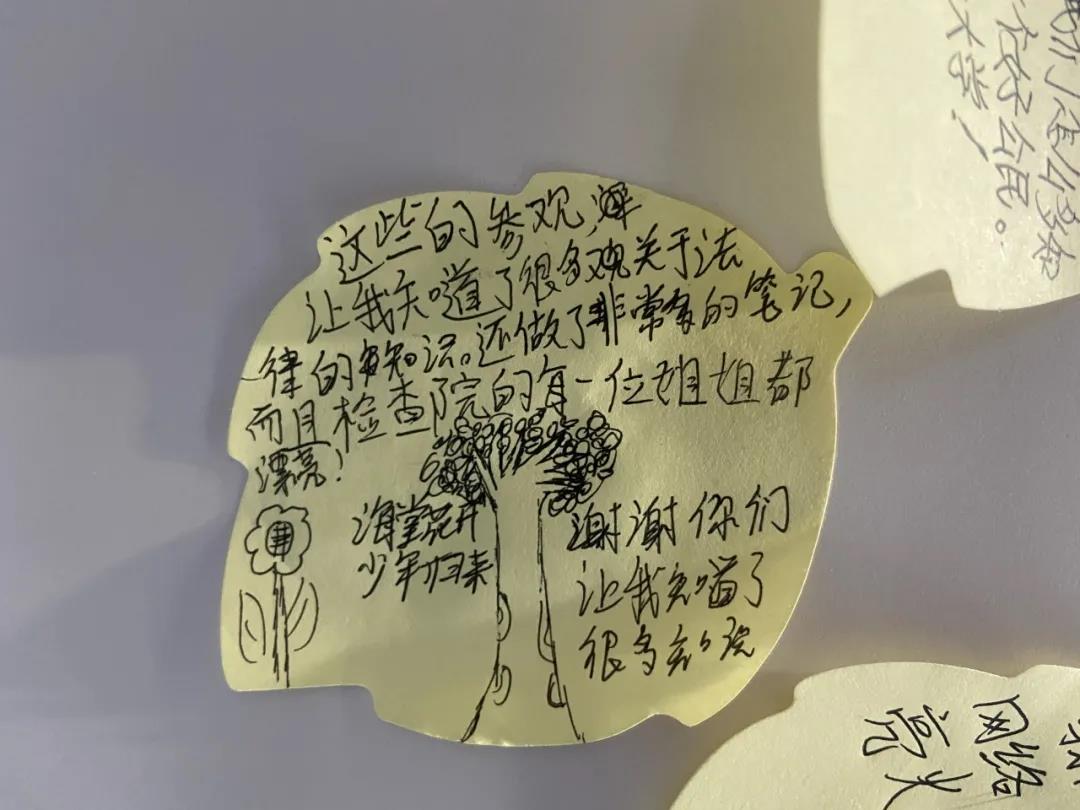 这些的参观,
让我知道了很多关于法
律的知识。还做了非常多的笔记,
而且检查院的每一位姐姐都
漂亮!
海棠花开
少年归来
谢谢你们
让我知道了
很多知识
好公民。
大学!
网络
亮火